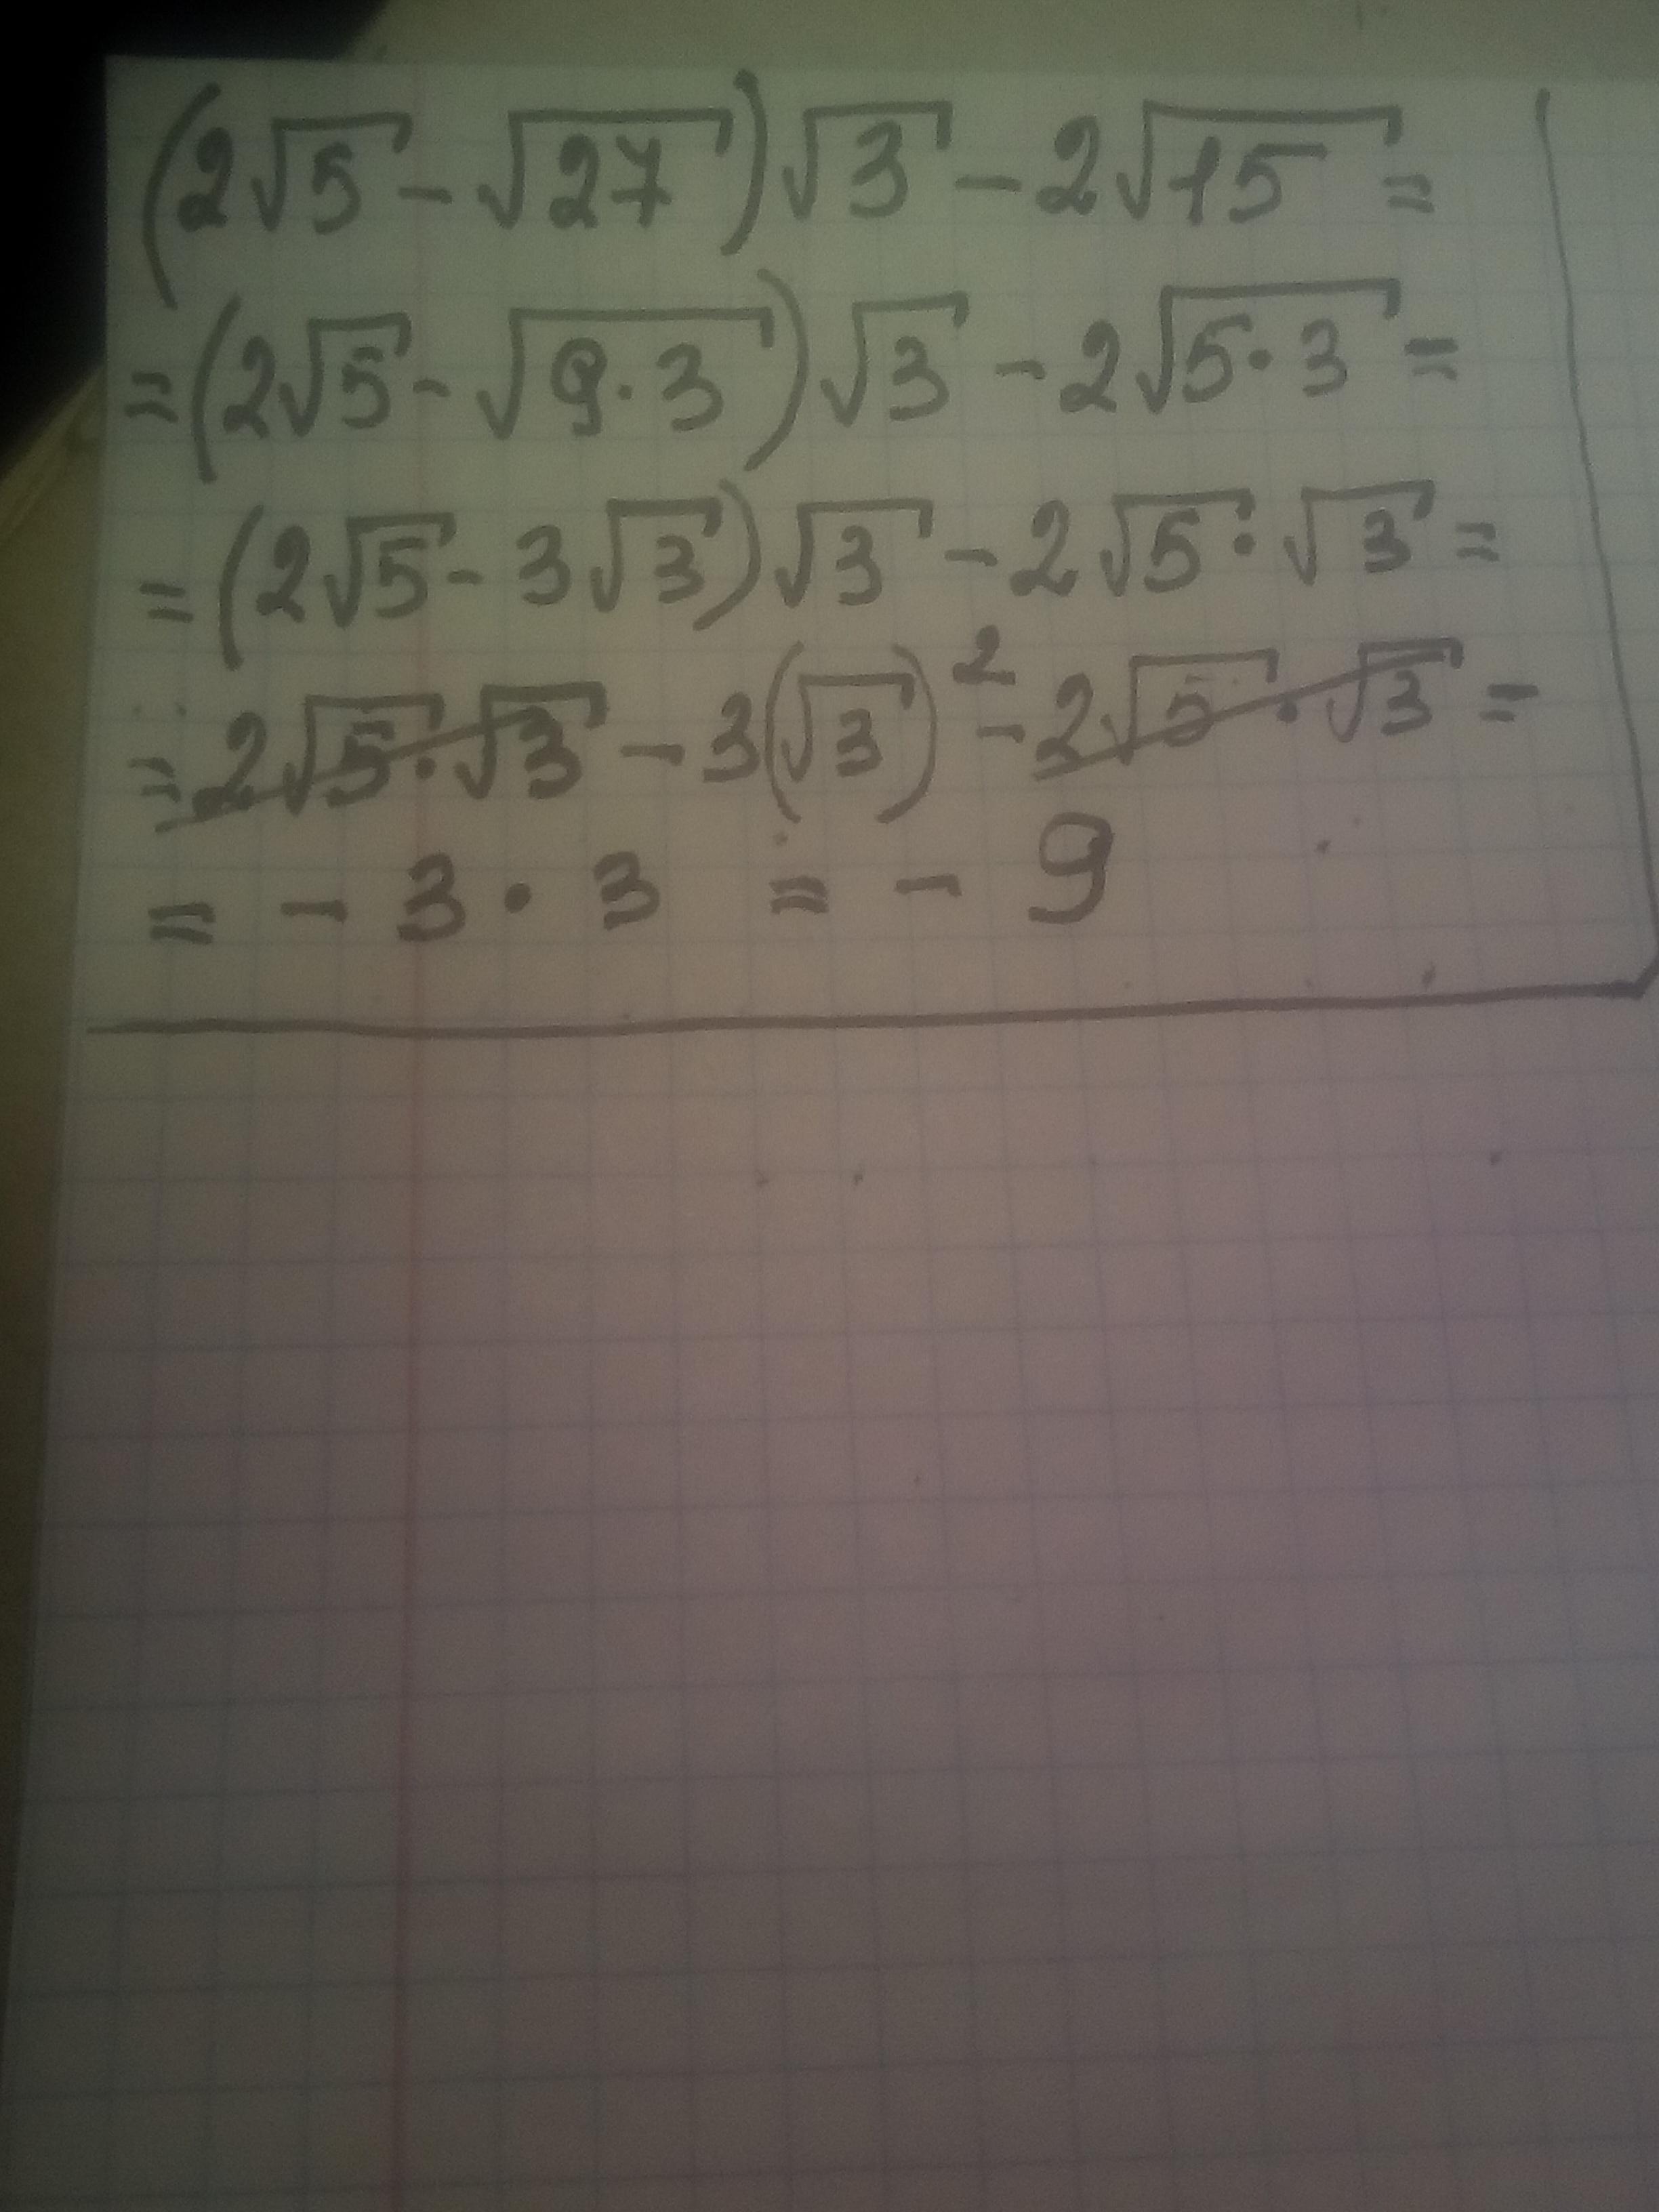 (2√5 - √27)√3 - 2√15 =
= (2√5 - √9·3)√3 - 2√5·3 =
= (2√5 - 3√3)√3 - 2√5·√3 =
= 2√5·√3 - 3(√3)² - 2√5·√3 =
= - 3·3 = - 9